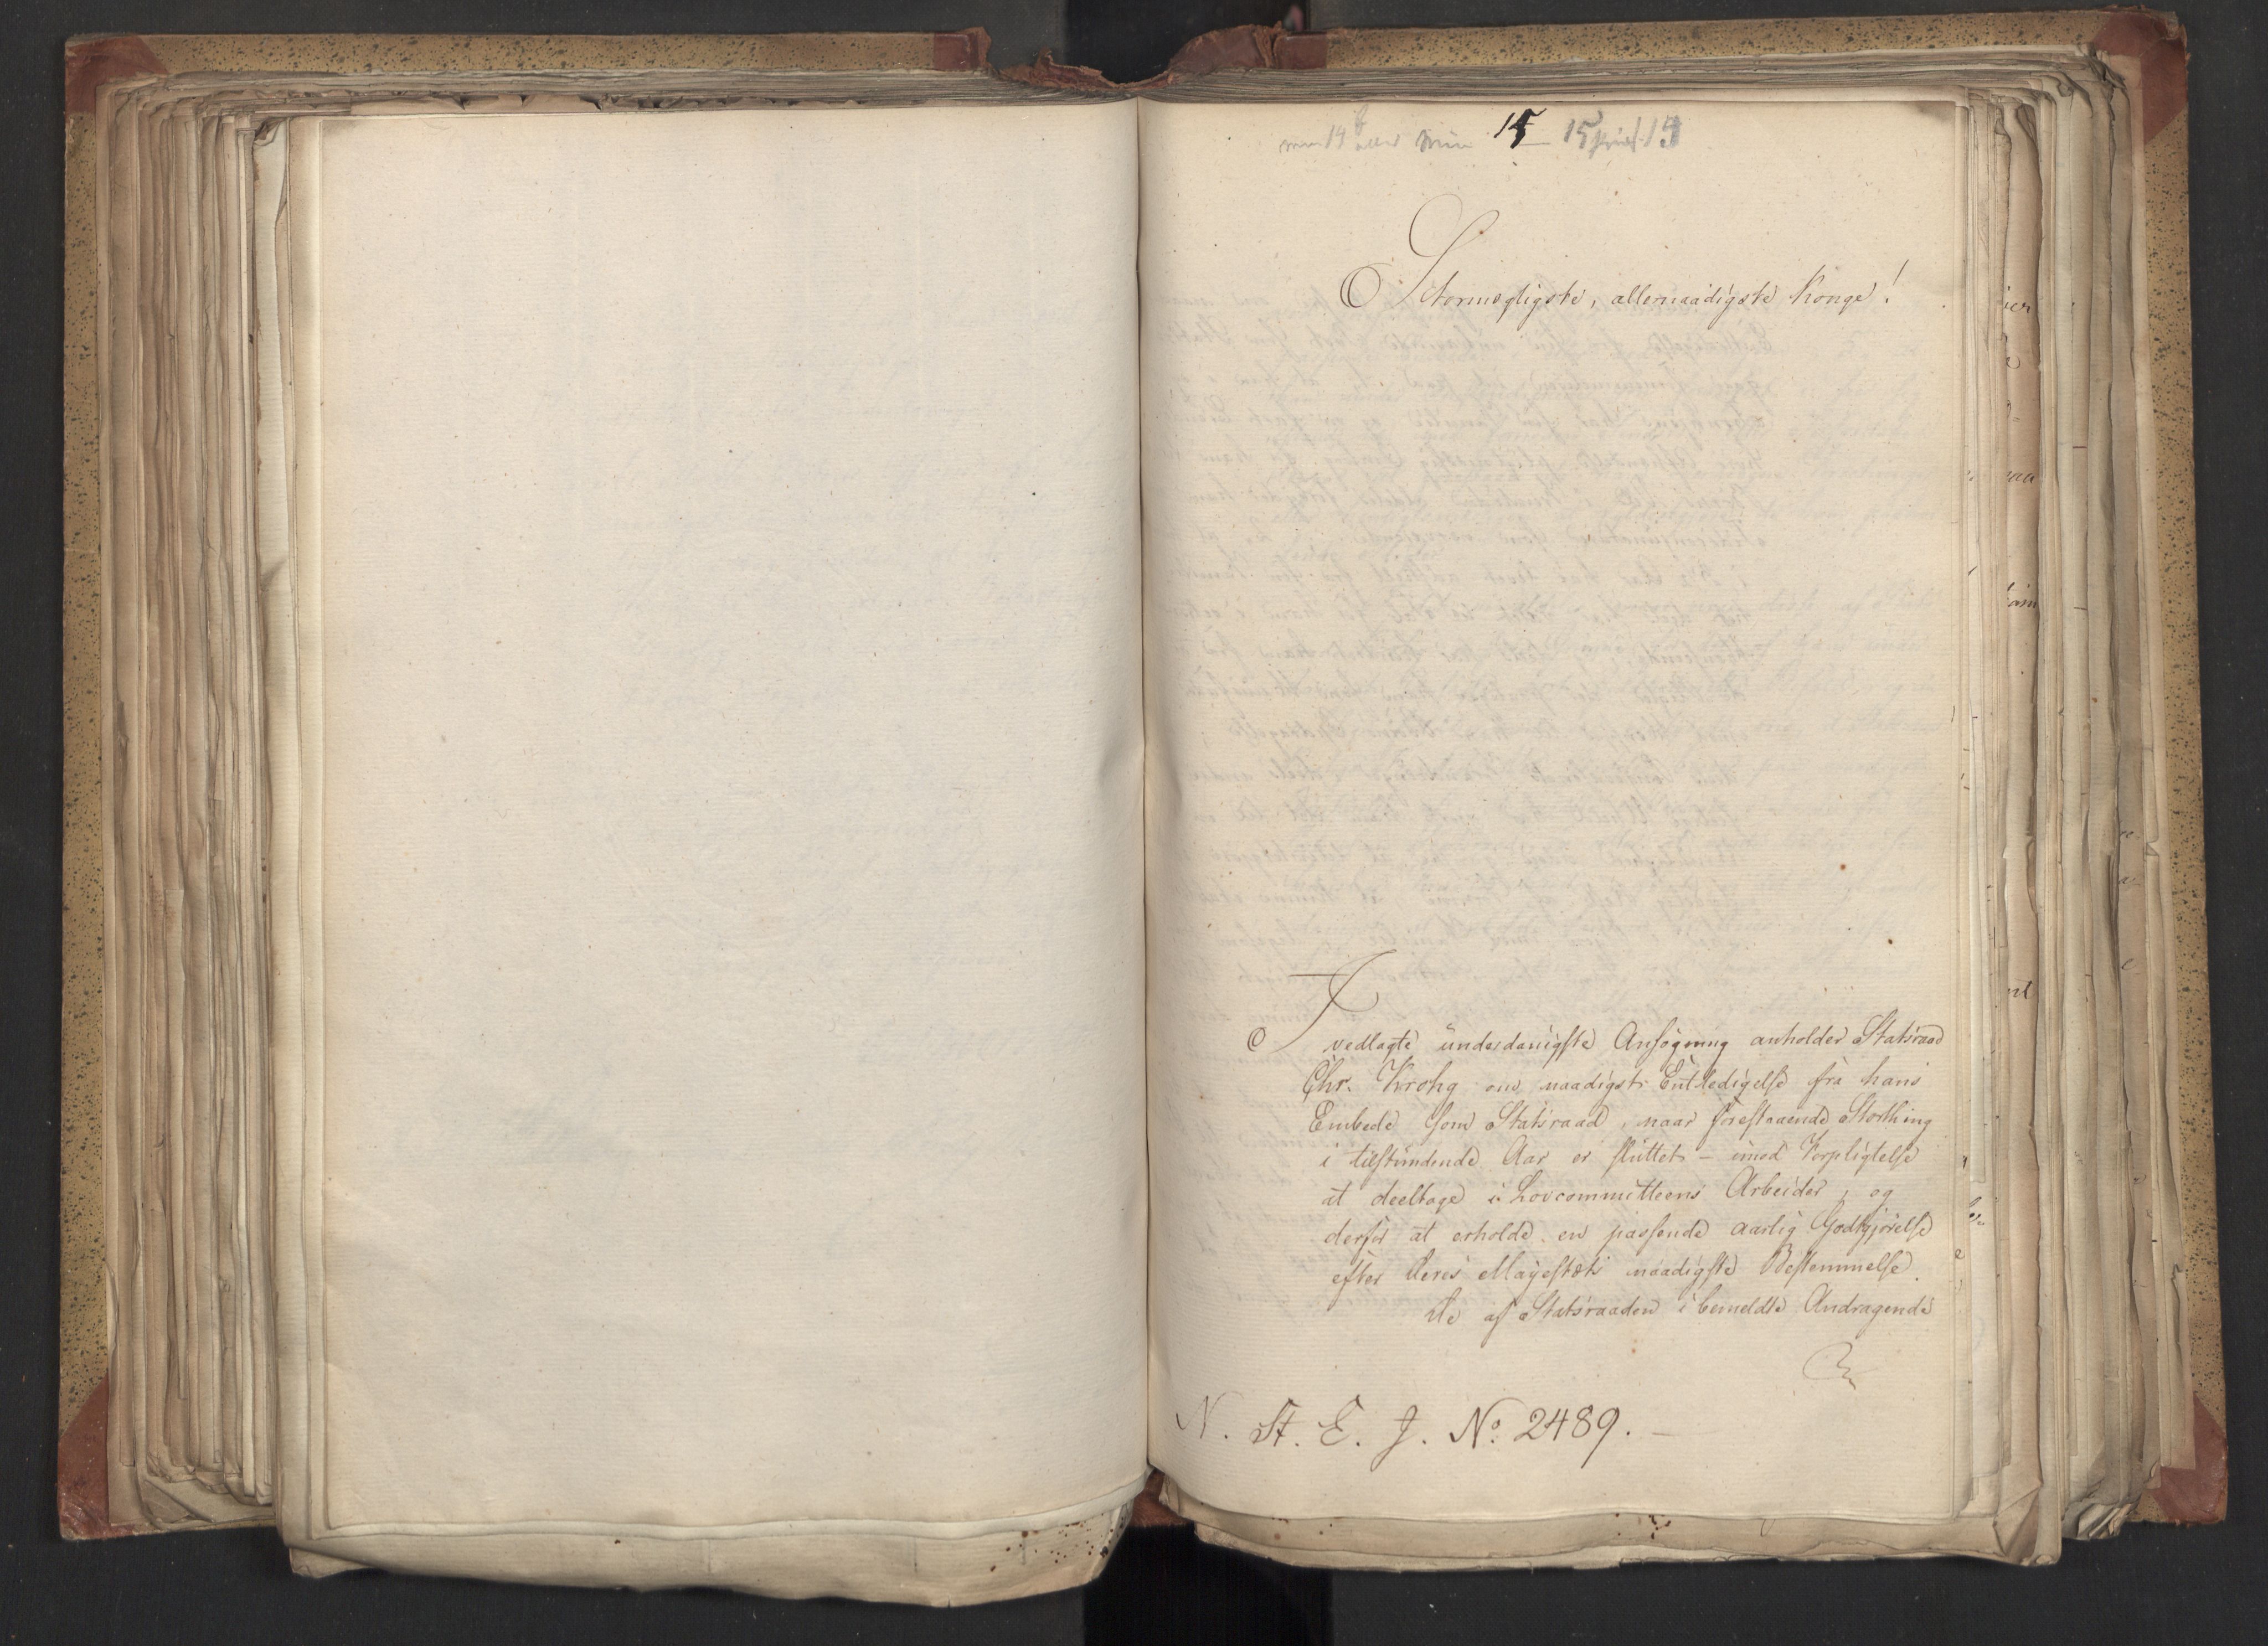 15
Stormægtigste, allernaadigste Konge!
I
vedlagte underdanigste Ansøgning anholder Statsraad
Chr. Krohg om naadigst Entledigelse fra hans
Embede som Statsraad, naar forestaaende Storthing
i tilstundende Aar er sluttet – imod Forpligtelse
at deeltage i Lovcommitteens Arbeider, og
derfor at erholde en passende aarlig Godtgjørelse
efter Deres Majestæts naadigste Bestemmelse.
De af Statsraaden i bemeldte Andragende
N. St. E. J. No. 2489. –